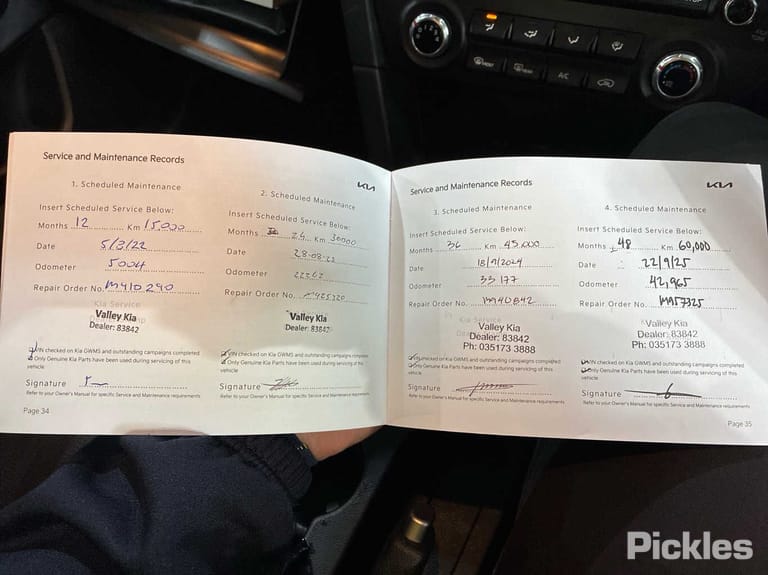 Service and Maintenance Records
KIA
1. Scheduled Maintenance
Insert Scheduled Service Below:
Months 12 Km 15,000
Date 5/3/22
Odometer 5004
Repair Order No. M410290
Kia Service
Valley Kia
Dealer: 83842
VIN checked on Kia GWMS and outstanding campaigns completed
Only Genuine Kia Parts have been used during servicing of this
vehicle
Signature
Refer to your Owner's Manual for specific Service and Maintenance requirements
Page 34
2. Scheduled Maintenance
Insert Scheduled Service Below:
Months 24 Km 30000
Date
Odometer
Repair Order No.
Valley Kia
Dealer: 83842
VIN checked on Kia GWMS and outstanding campaigns completed
Only Genuine Kia Parts have been used during servicing of this
vehicle
Signature
Refer to your Owner's Manual for specific Service and Maintenance requirements
Service and Maintenance Records
KIA
3. Scheduled Maintenance
Insert Scheduled Service Below:
Months 36 Km 45,000
Date 18/9/2024
Odometer 33 177
Repair Order No.
Valley Kia
Dealer: 83842
Ph: 035173 3888
VIN checked on Kia GWMS and outstanding campaigns completed
Only Genuine Kia Parts have been used during servicing of this
vehicle
Signature
Refer to your Owner's Manual for specific Service and Maintenance requirements
4. Scheduled Maintenance
Insert Scheduled Service Below:
Months 48 Km 60,000
Date 22/9/25
Odometer 42,965
Repair Order No. M957325
Valley Kia
Dealer: 83842
Ph: 035173 3888
VIN checked on Kia GWMS and outstanding campaigns completed
Only Genuine Kia Parts have been used during servicing of this
vehicle
Signature
Refer to your Owner's Manual for specific Service and Maintenance requirements
Page 35
A/C
Pickles